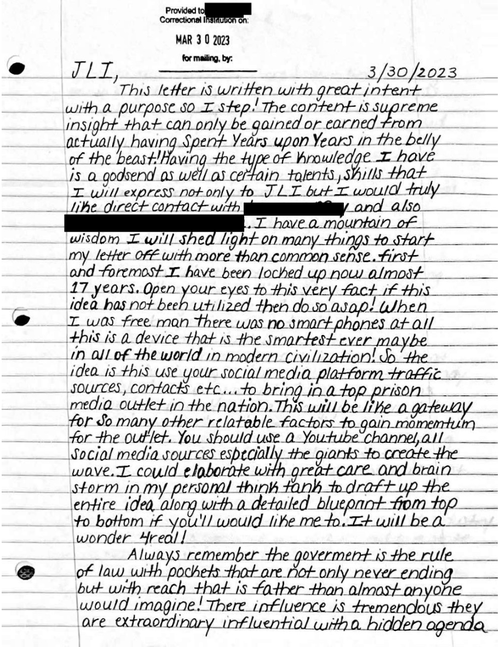 Provided to
Correctional Institution on:
MAR 30 2023
for mailing, by:
JLI, 3/30/2023
This letter is written with great intent
with a purpose so I step! The content is supreme
insight that can only be gained or earned from
actually having spent Years upon Years in the belly
of the beast! Having the type of knowledge I have
is a godsend as well as certain talents, skills that
I will express not only to JLI but I would truly
like direct contact with and also
. I have a mountain of
wisdom I will shed light on many things to start
my letter off with more than common sense. first
and foremost I have been locked up now almost
17 years. Open your eyes to this very fact if this
idea has not been utilized then do so asap! When
I was free man there was no smart phones at all
this is a device that is the smartest ever maybe
in all of the world in modern civilization! So the
idea is this use your social media platform traffic
sources, contacts etc... to bring in a top prison
media outlet in the nation. This will be like a gateway
for so many other relatable factors to gain momentum
for the outlet. You should use a Youtube channel, all
social media sources especially the giants to create the
wave. I could elaborate with great care and brain
storm in my personal think tank to draft up the
entire idea along with a detailed blueprint from top
to bottom if you'll would like me to. It will be a
wonder 4real!
Always remember the goverment is the rule
of law with pockets that are not only never ending
but with reach that is father than almost anyone
would imagine! There influence is tremendous they
are extraordinary influential with a hidden agenda